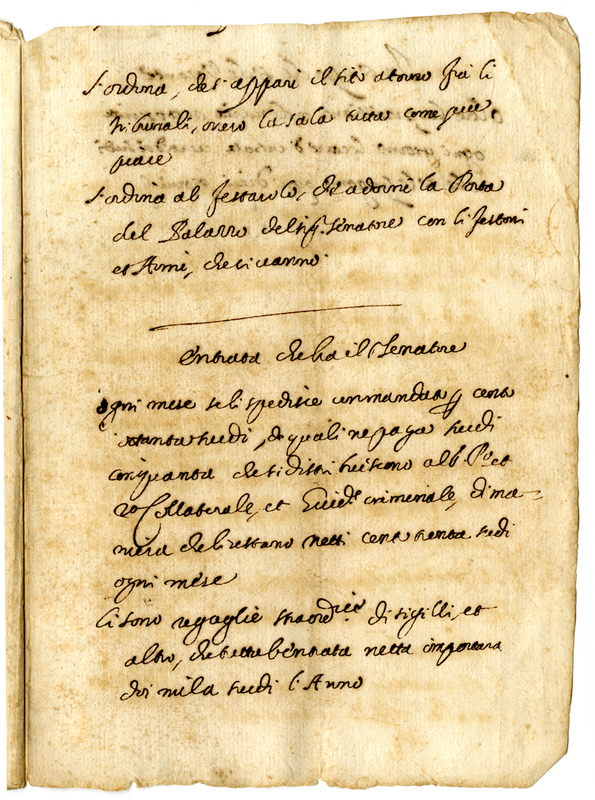 S'ordina, che s'appari il sito atorno frà li
tribunali, overo la sala tutta come più
piace
S'ordina al festarolo, ch'adorni la Porta
del Palazzo del sig. Senatore con li festoni
et Armi, che ci vanno
Entrata che ha il Senatore
Ogni mese se li spedisce un mandato p cento
ottanta scudi, de quali ne paga scudi
cinquanta che si distribuiscono alli Po et
2o Collaterale, et Giudice criminale, di ma=
niera che li restano netti cento trenta scudi
ogni mese
Ci sono regaglie straordrie di sigilli, et
altro, che tutta l'entrata netta importarà
doi mila scudi l'Anno